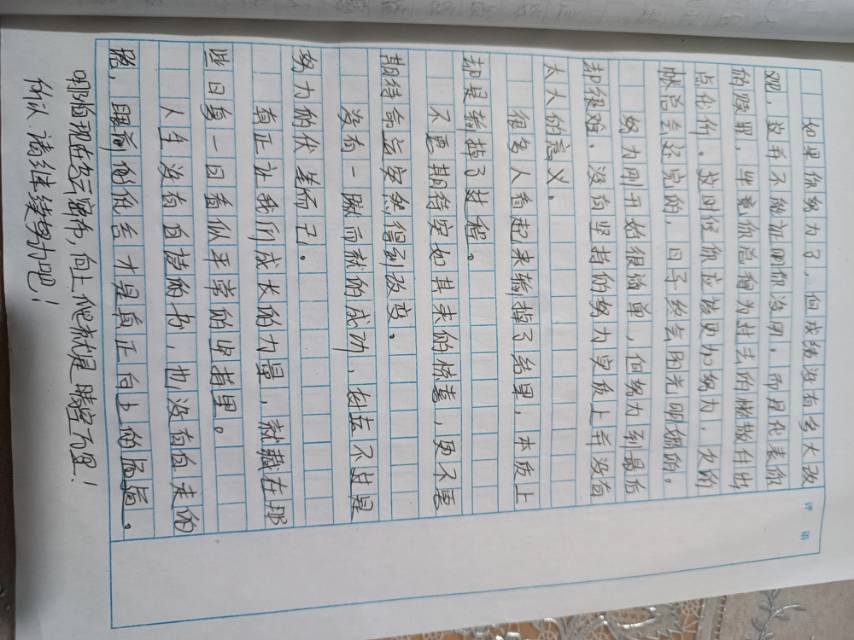 如果你努力了，但成绩没有多大改
观，这并不能证明你没用，而是代表你
的毅力，毕竟你总得为过去的懒散付出
点代价。这时候你应该更加努力，欠的
帐总会还完的，日子终会阳光明媚的。
努力刚开始很简单，但努力到最后
却很难，没有坚持的努力实质上并没有
太大的意义。
很多人看起来输掉了结果，本质上
却是输掉了过程。
不要期待突如其来的惊喜，更不要
期待命运突然得到改变。
没有一蹴而就的成功，付出不过是
努力的伏笔而已。
真正让我们成长的力量，就藏在那
些日复一日看似平常的坚持里。
人生没有白读的书，也没有白走的
路，眼前的低台才是真正向上的
哪怕现在 ，向上爬就是
所以请继续努力吧！
评语